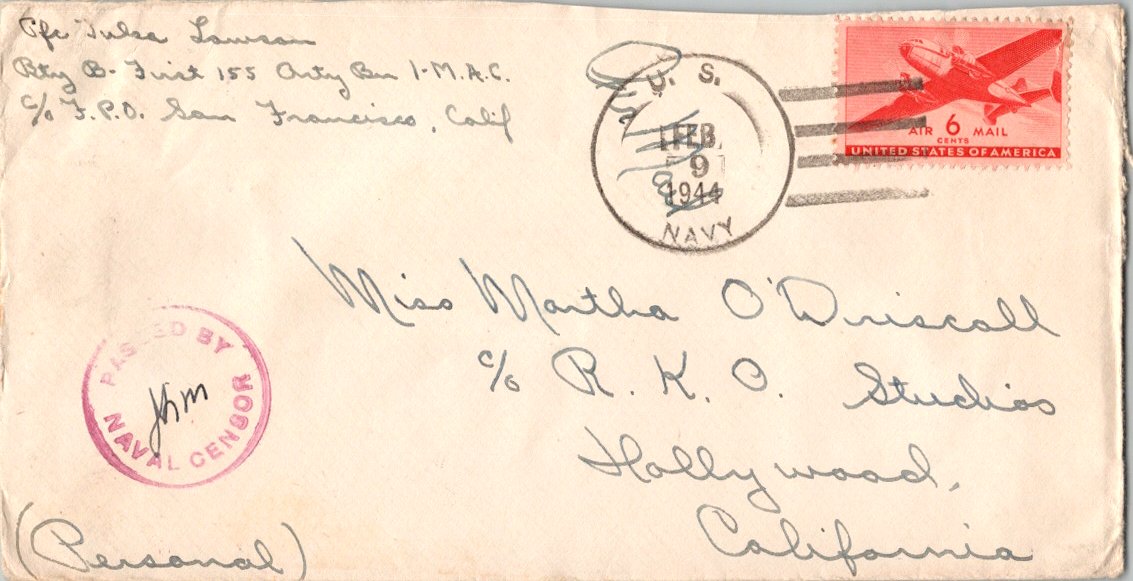 Pfc Tulsa Lawson
Bty B- First 155 Arty Bn 1-M.A.C.
c/o F.P.O. San Francisco, Calif
U. S.
FEB
9
1944
NAVY
AIR 6 MAIL
CENTS
UNITED STATES OF AMERICA
Miss Martha O'Driscoll
c/o R. K. O. Studios
Hollywood,
California
PASSED BY
NAVAL CENSOR
(Personal)